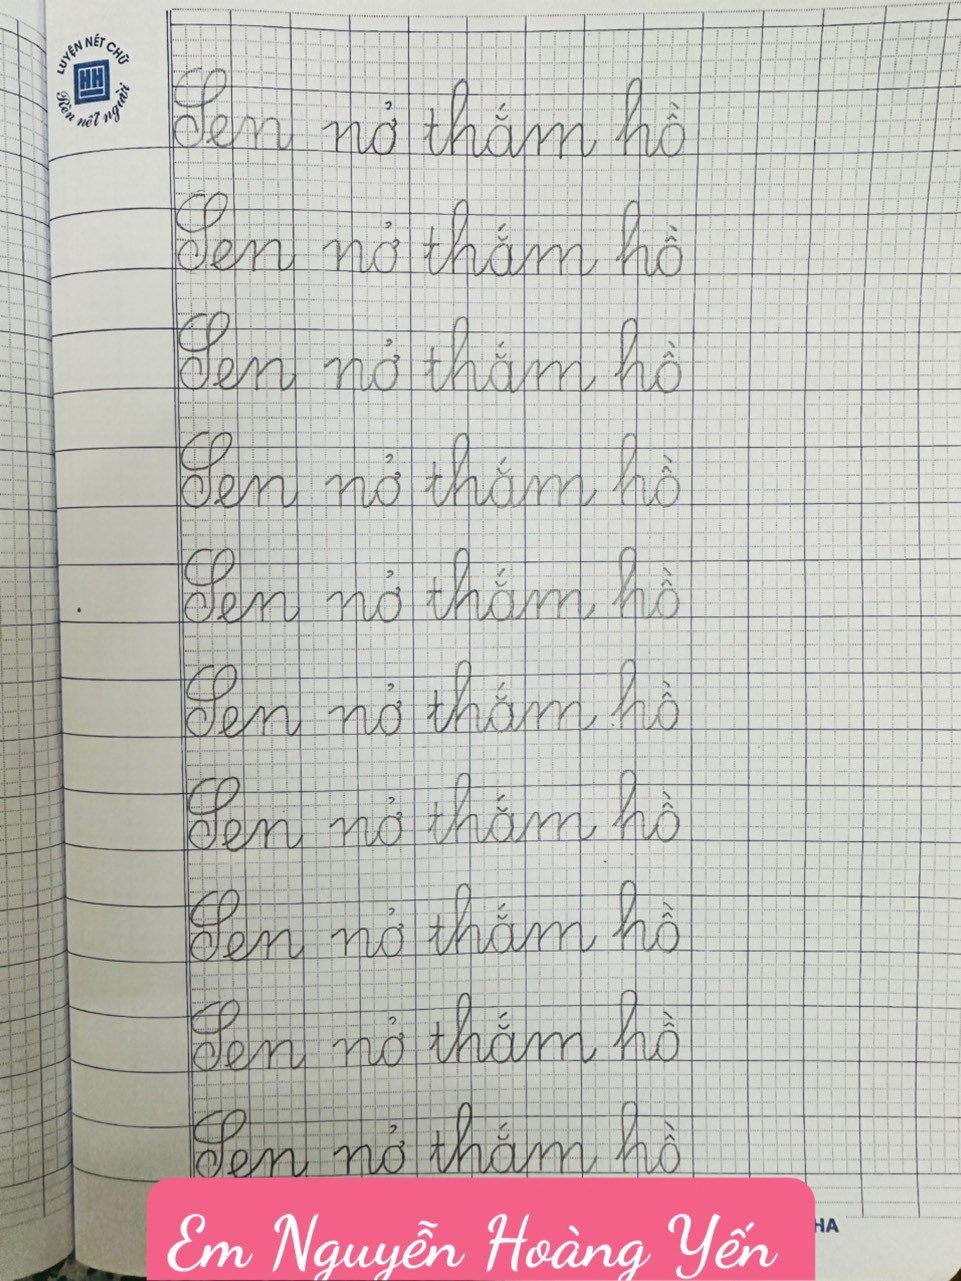 LUYỆN NÉT CHỮ
HH
Rèn nết người
Sen nở thắm hồ
Sen nở thắm hồ
Sen nở thắm hồ
Sen nở thắm hồ
Sen nở thắm hồ
Sen nở thắm hồ
Sen nở thắm hồ
Sen nở thắm hồ
Sen nở thắm hồ
Sen nở thắm hồ
HA
Em Nguyễn Hoàng Yến